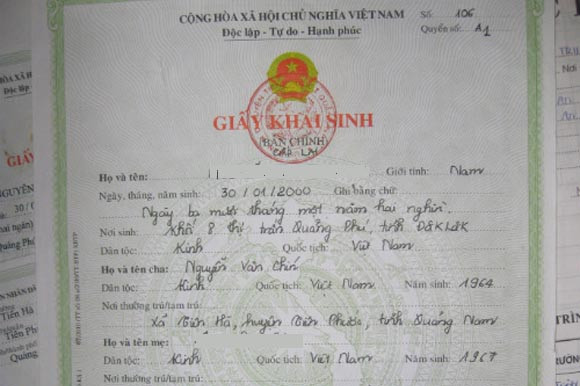 CỘNG HÒA XÃ HỘI CHỦ NGHĨA VIỆT NAM
Độc lập - Tự do - Hạnh phúc
Số: 106
Quyển số: A1
GIẤY KHAI SINH
(BẢN CHÍNH)
CẤP LẠI
Họ và tên: Giới tính: Nam
Ngày, tháng, năm sinh: 30/01/2000 Ghi bằng chữ:
Ngày ba mươi tháng một năm hai nghìn.
Nơi sinh: Khối 8 thị trấn Quảng Phú, tỉnh Đăk Lăk
Dân tộc: Kinh Quốc tịch: Việt Nam
Họ và tên cha: Nguyễn Văn Chín
Dân tộc: Kinh Quốc tịch: Việt Nam Năm sinh: 1964
Nơi thường trú/tạm trú:
Xã Tiên Hà, huyện Tiên Phước, tỉnh Quảng Nam
Họ và tên mẹ:
Dân tộc: Kinh Quốc tịch: Việt Nam Năm sinh: 1967
Nơi thường trú/tạm trú: